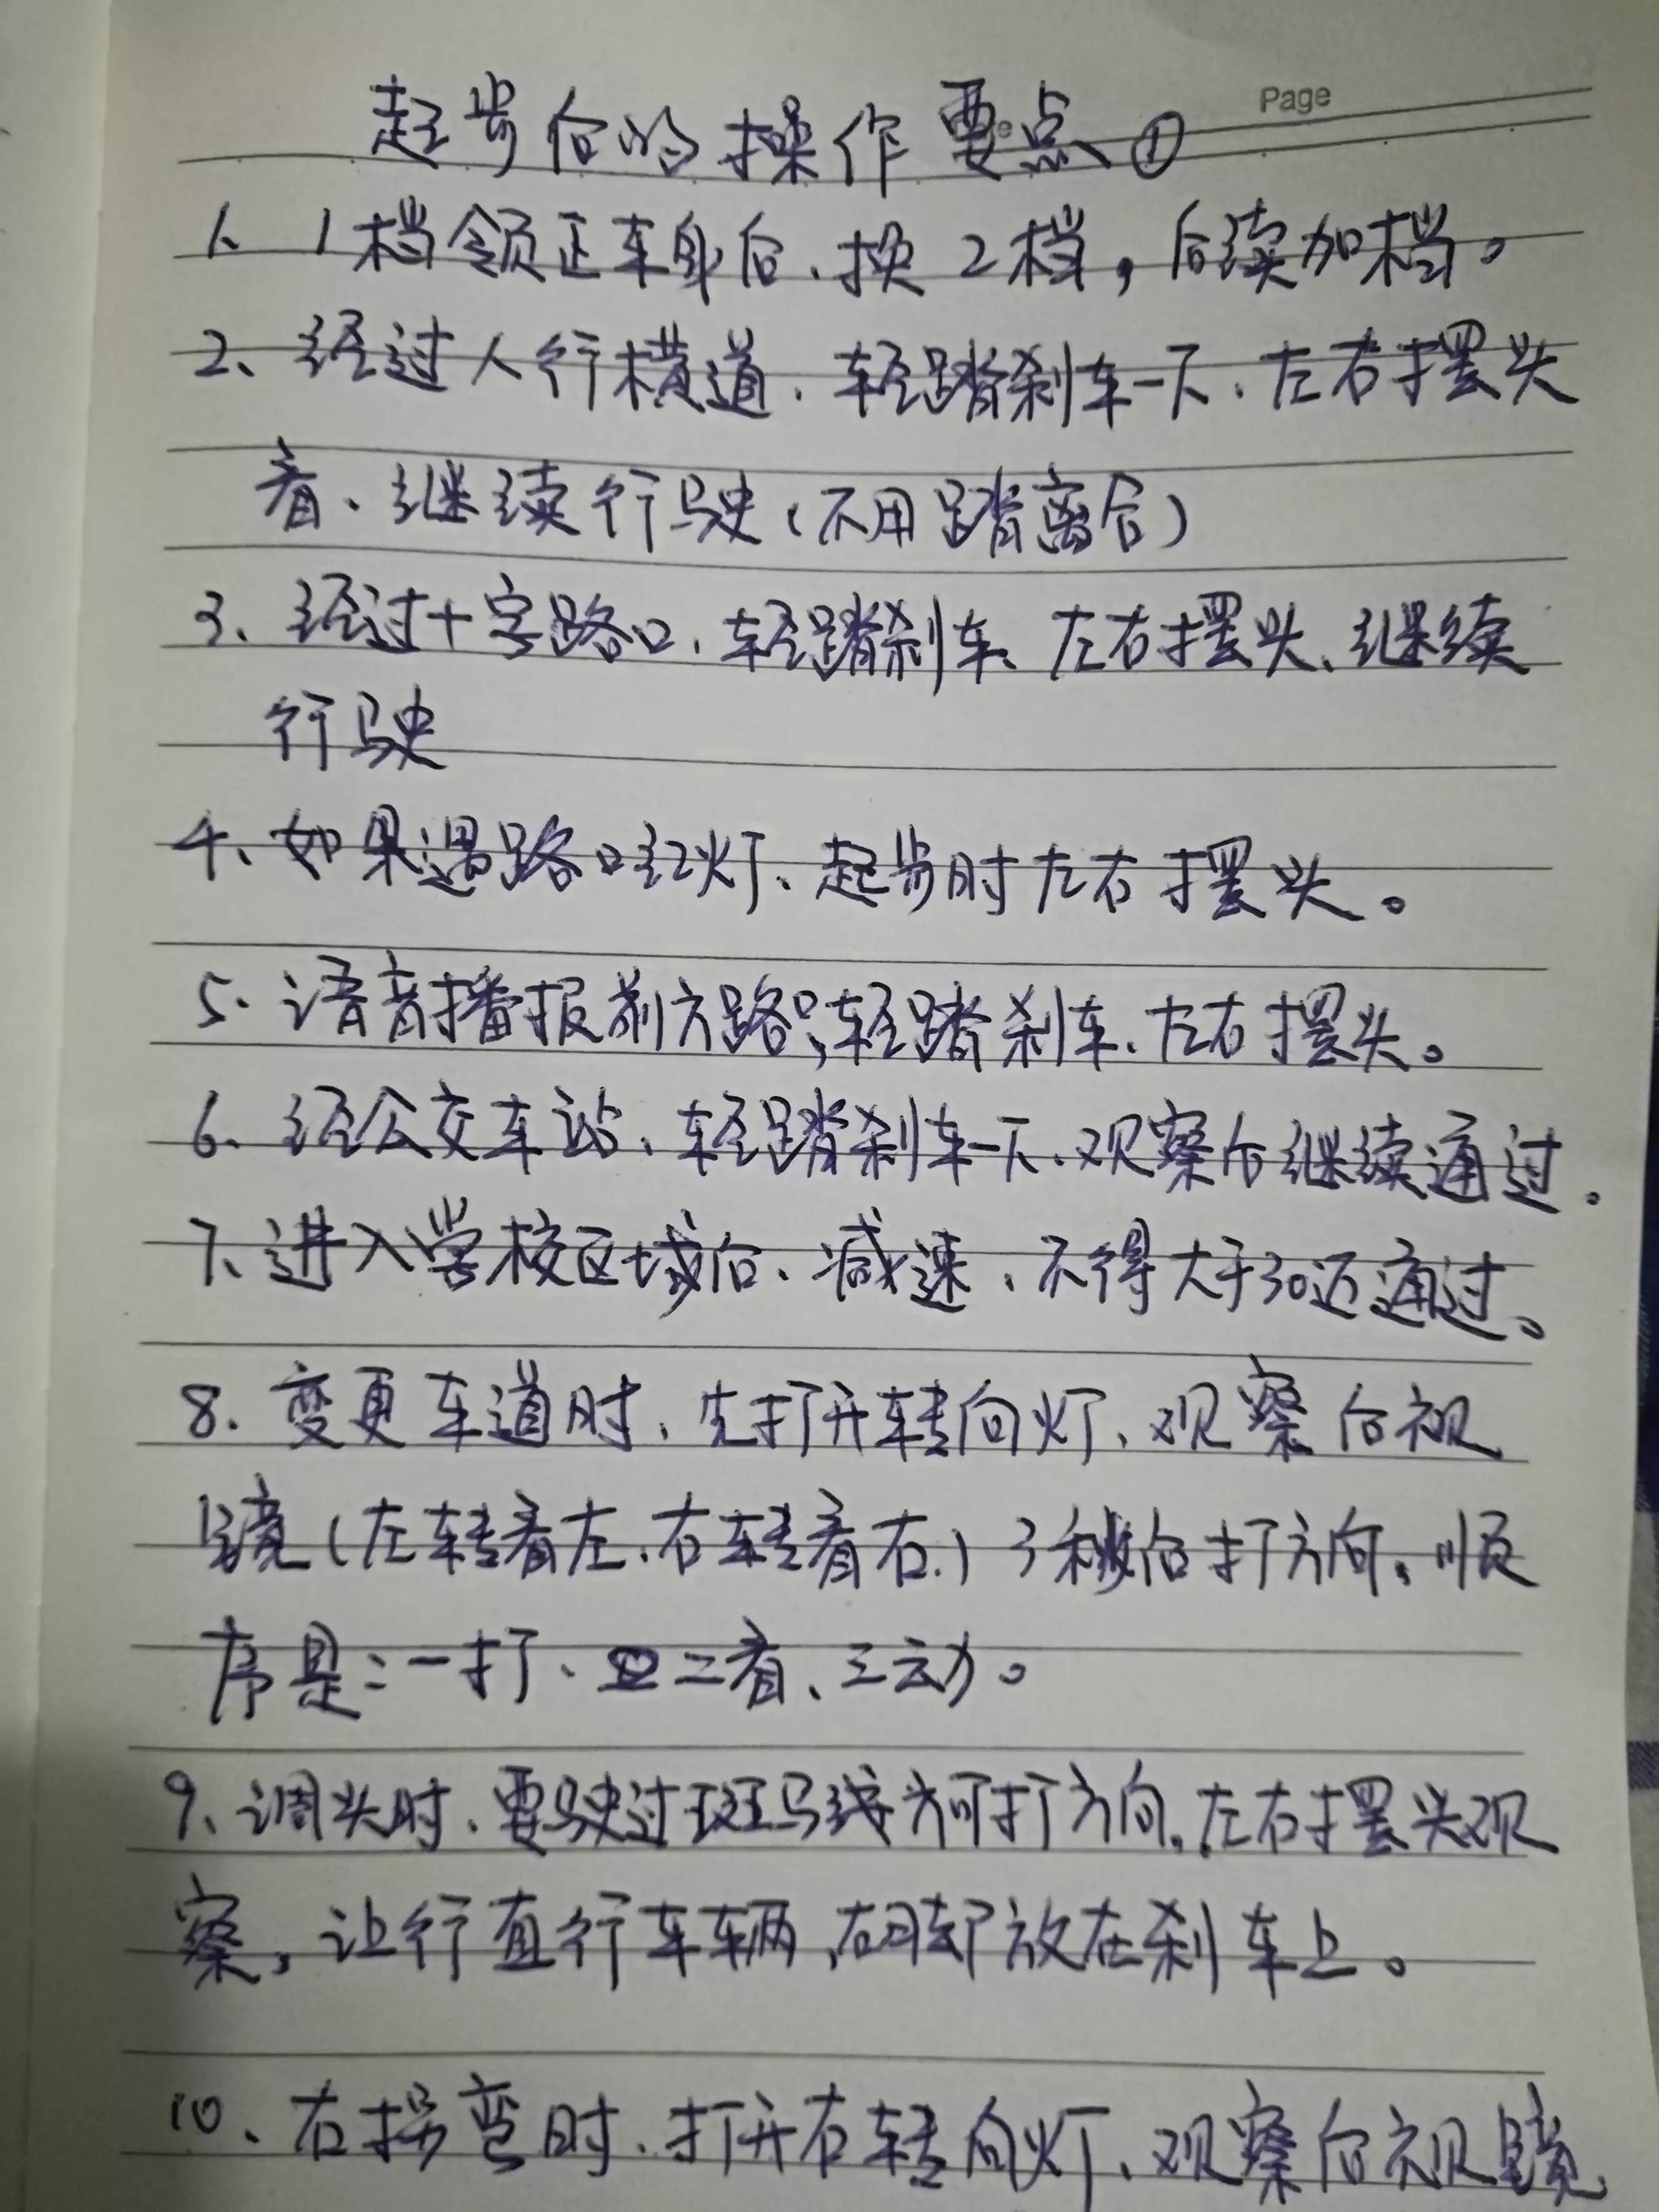 Page
起步后的操作要点①
1、1档领正车身后、换2档，后续加档。
2、经过人行横道、轻踏刹车一下、左右摆头
看、继续行驶（不用踏离合）
3、经过十字路口、轻踏刹车、左右摆头、继续
行驶
4、如果遇路口红灯、起步时左右摆头。
5、语音播报前方路口，轻踏刹车、左右摆头。
6、经公交车站、轻踏刹车一下、观察后继续通过。
7、进入学校区域后、减速、不得大于30迈通过。
8、变更车道时、先打开转向灯、观察后视
镜（左转看左、右转看右.）3秒后打方向。顺
序是：一打、二看、三动。
9、调头时、要驶过斑马线方可打方向。左右摆头观
察。让行直行车辆，右脚放在刹车上。
10、右拐弯时、打开右转向灯、观察后视镜